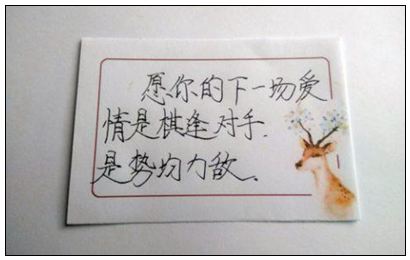 愿你的下一场爱
情是棋逢对手.
是势均力敌.